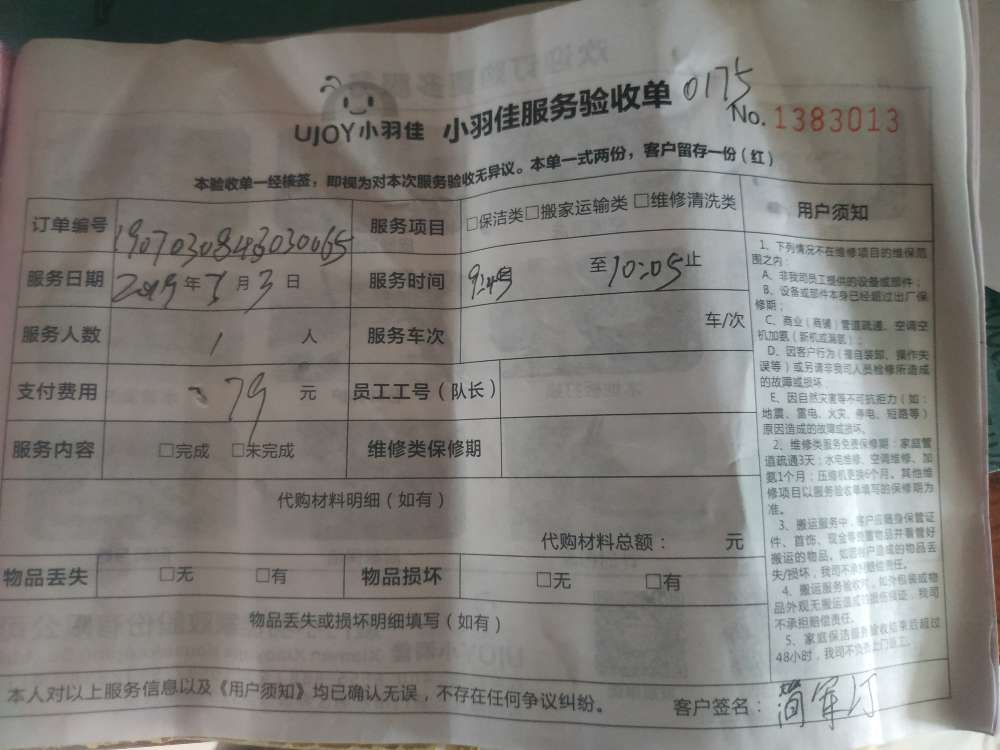 UJOY小羽佳 小羽佳服务验收单 0175
No. 1383013
本验收单一经核签，即视为对本次服务验收无异议。本单一式两份，客户留存一份(红)
订单编号 服务项目 □保洁类□搬家运输类 □维修清洗类
服务日期 2019年7月3日 服务时间 9:45 至10:05止
服务人数 1 人 服务车次 车/次
支付费用 79 元 员工工号(队长)
服务内容 □完成 □未完成 维修类保修期
代购材料明细(如有)
代购材料总额： 元
物品丢失 □无 □有 物品损坏 □无 □有
物品丢失或损坏明细填写(如有)
本人对以上服务信息以及《用户须知》均已确认无误，不存在任何争议纠纷。 客户签名：
用户须知
1、下列情况不在维修项目的维保范
围之内：
A、非我司员工提供的设备或部件；
B、设备或部件本身已经超过出厂保
修期；
C、商业(商铺)管道疏通、空调空
机加氨(新机或漏氨)；
D、因客户行为(擅自装卸、操作失
误等)或另请非我司人员检修所造成
的故障或损坏
E、因自然灾害等不可抗拒力(如：
地震、雷电、火灾、停电、短路等)
原因造成的故障或损坏。
2、维修类服务免费保修期：家庭管
道疏通3天；水电维修、空调维修、加
氨1个月；压缩机更换6个月。其他维
修项目以服务验收单填写的保修期为
准。
3、搬运服务中，客户应随身保管证
件、首饰、现金等贵重物品并看管好
搬运的物品，如因客户造成的物品丢
失/损坏，我司不承担赔偿责任。
4、搬运服务验收时，如外包装或物
品外观无搬运造成的损伤痕迹，我司
不承担赔偿责任。
5、家庭保洁服务验收结束后超过
48小时，我司不负责上门返工。